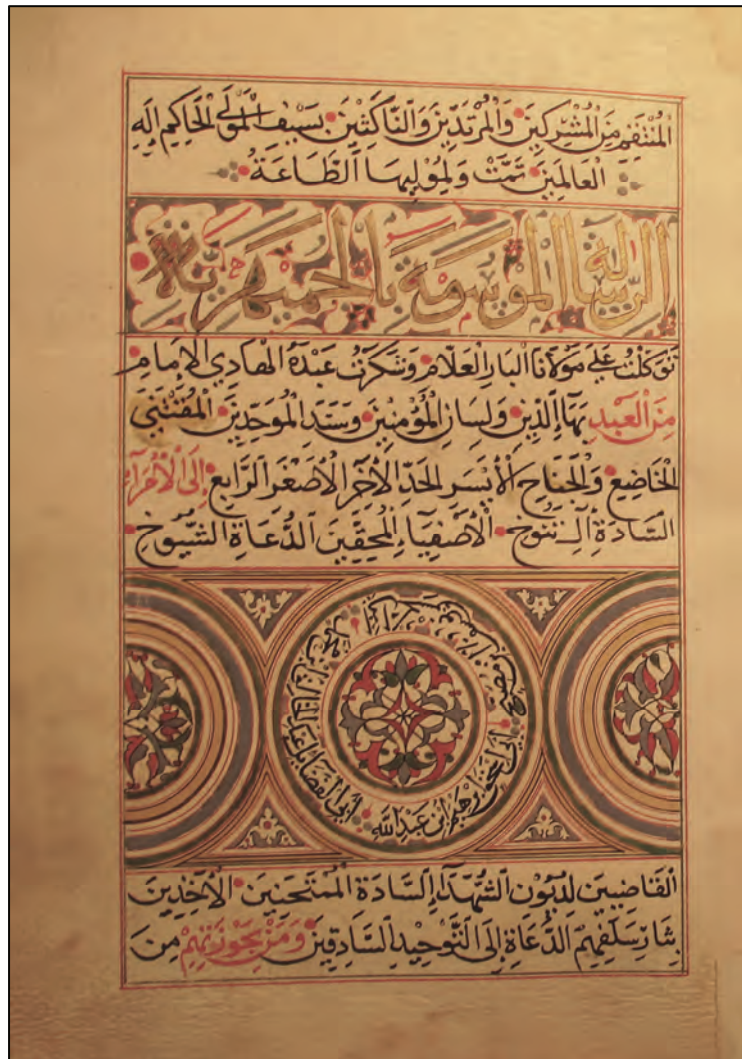 المُنْتَقِمِ مِنَ المُشْرِكِينَ وَالمُرْتَدِّينَ وَالنَّاكِثِينَ بِسَيْفِ المَوْلَى الحَاكِمِ إِلَهِ
العَالَمِينَ تَمَّتْ وَلِمُوْلِيهَا الطَّاعَةُ
الرِّسَالَة المَوْسُومَة بِالجُمَيْهَرِيَّة
تَوَكَّلْتُ عَلَى مَوْلَانَا البَارِ العَلَّامِ وَشَكَرْتُ عَبْدَهُ الهَادِي الإِمَامِ
مِنَ العَبْدِ بَهَا الدِّينِ وَلِسَانِ المُؤْمِنِينَ وَسَنَدِ المُوَحِّدِينَ المُقْتَنَى
الخَاضِعِ وَالجَنَاحِ الأَيْسَرِ لِلحَدِّ الآخَرِ الأَصْغَرِ الرَّابِعِ إِلَى الأُمَرَآءِ
السَّادَةِ آلِ تَنُوخ الأَصْفِيَاءِ المُحِقِّينَ الدُّعَاةِ الشُّيُوخ
أبي الفضايل عبد ابن عبد الله
القَاضِيينَ لِدُيُونِ الشُّهَدَآءِ السَّادَةِ المُمْتَحَنِينَ الآخِذِينَ
بِثَارِ سَلَفِهِمُ الدُّعَاةِ إِلَى التَّوْحِيدِ السَّادِقِينَ وَمَنْ يَحُوزُ نَهُمْ مِنَ